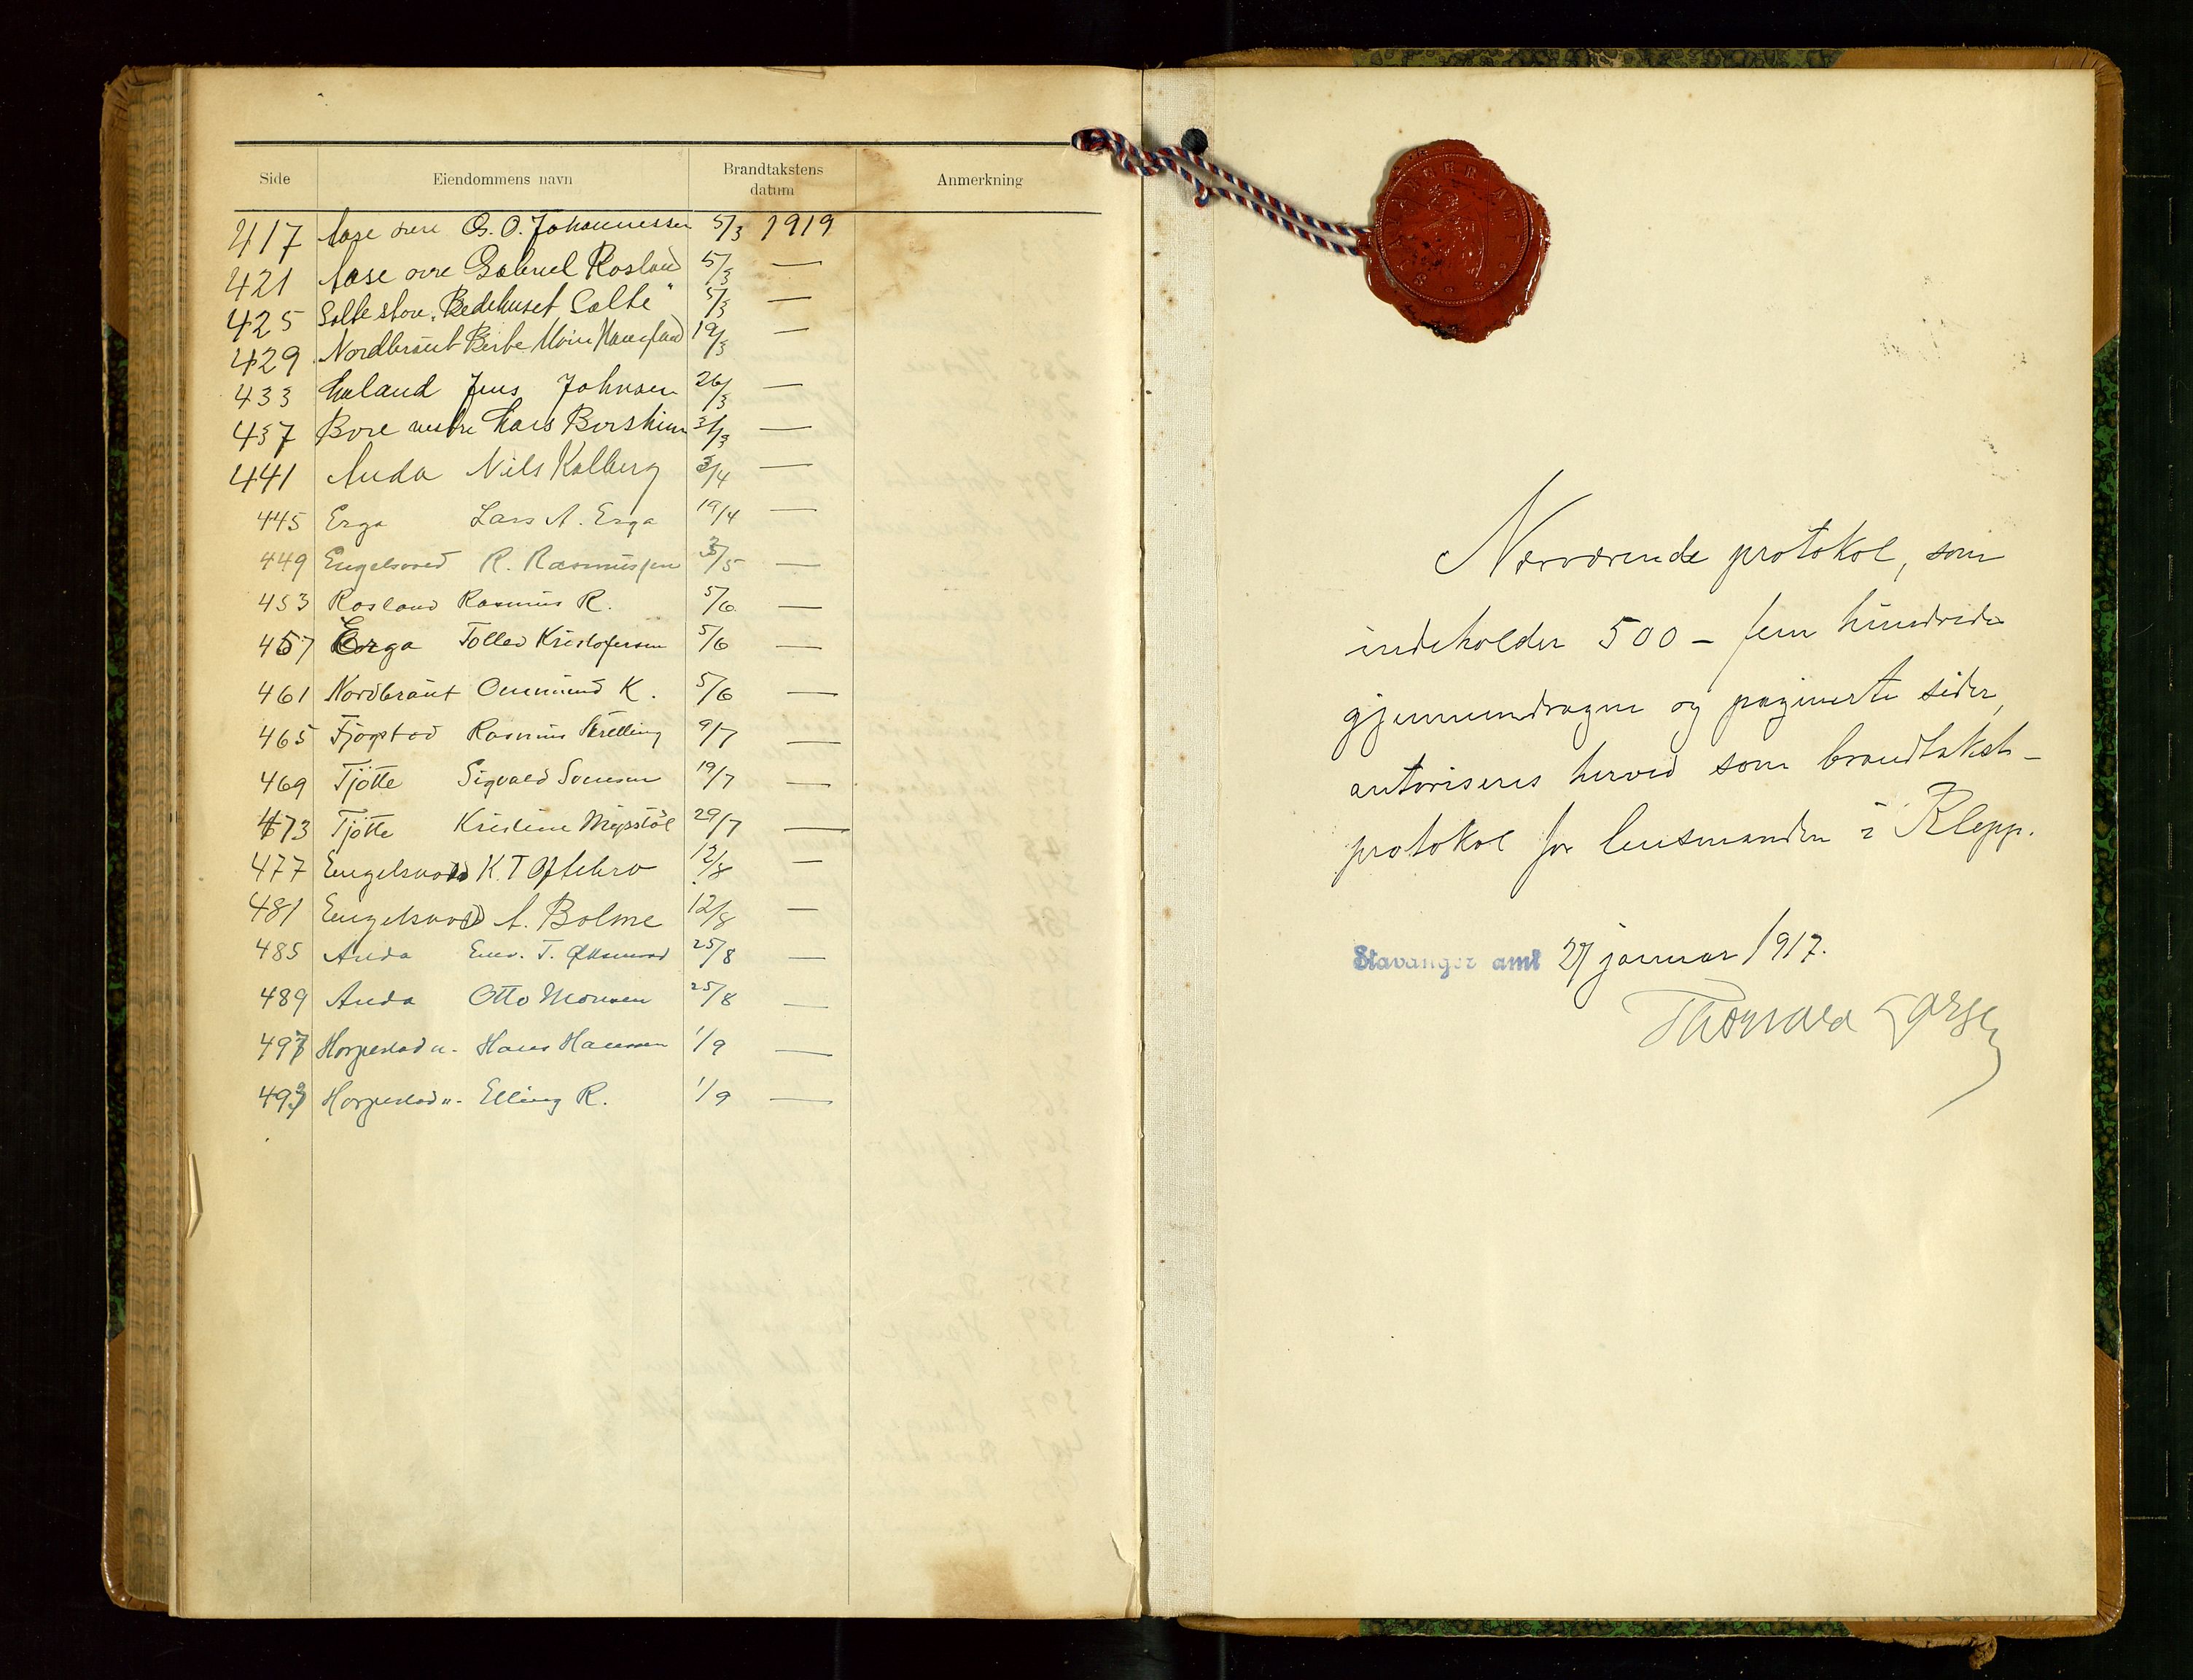 Side Eiendommens navn Brandtakstens datum Anmerkning
417 Aase øvre G. O. Johannessen 5/3 1919
421 Aase øvre Gabriel Rosland 5/3 —
425 Salte store "Bedehuset Salte" 5/3 —
429 Nordbraut Berte Haugland 19/3 —
433 Haland Jens Johnsen 26/3 —
437 Bore vestre Lars Borsheim 31/3 —
441 Anda Nils Kalberg 3/4 —
445 Erga Lars A. Erga 19/4 —
449 Engelsvod R. Rasmussen 3/5 —
453 Rosland Rasmus R. 5/6 —
457 Erga Tolleo Kristofersen 5/6 —
461 Nordbraut Ommund K. 5/6 —
465 Fjogstad Rasmus 9/7 —
469 Tjötte Sigvald Svensen 19/7 —
473 Tjötte Kristine 29/7 —
477 Engelsvold K. T. Oftebro 12/8 —
481 Engelsvold A. Bolme 12/8 —
485 Anda T. 25/8 —
489 Anda Otto Monsen 25/8 —
497 Horpestad n. Hans Hanssen 1/9 —
493 Horpestad n. Elling R. 1/9 —
STAVANGER AMT
Nærværende protokol, som
indeholder 500 – fem hundrede
gjennemdragne og paginerte sider,
autoriseres herved som brandtakst-
protokol for lensmanden i Klepp.
Stavanger amt 27 januar 1917.
Thorvald Larsen